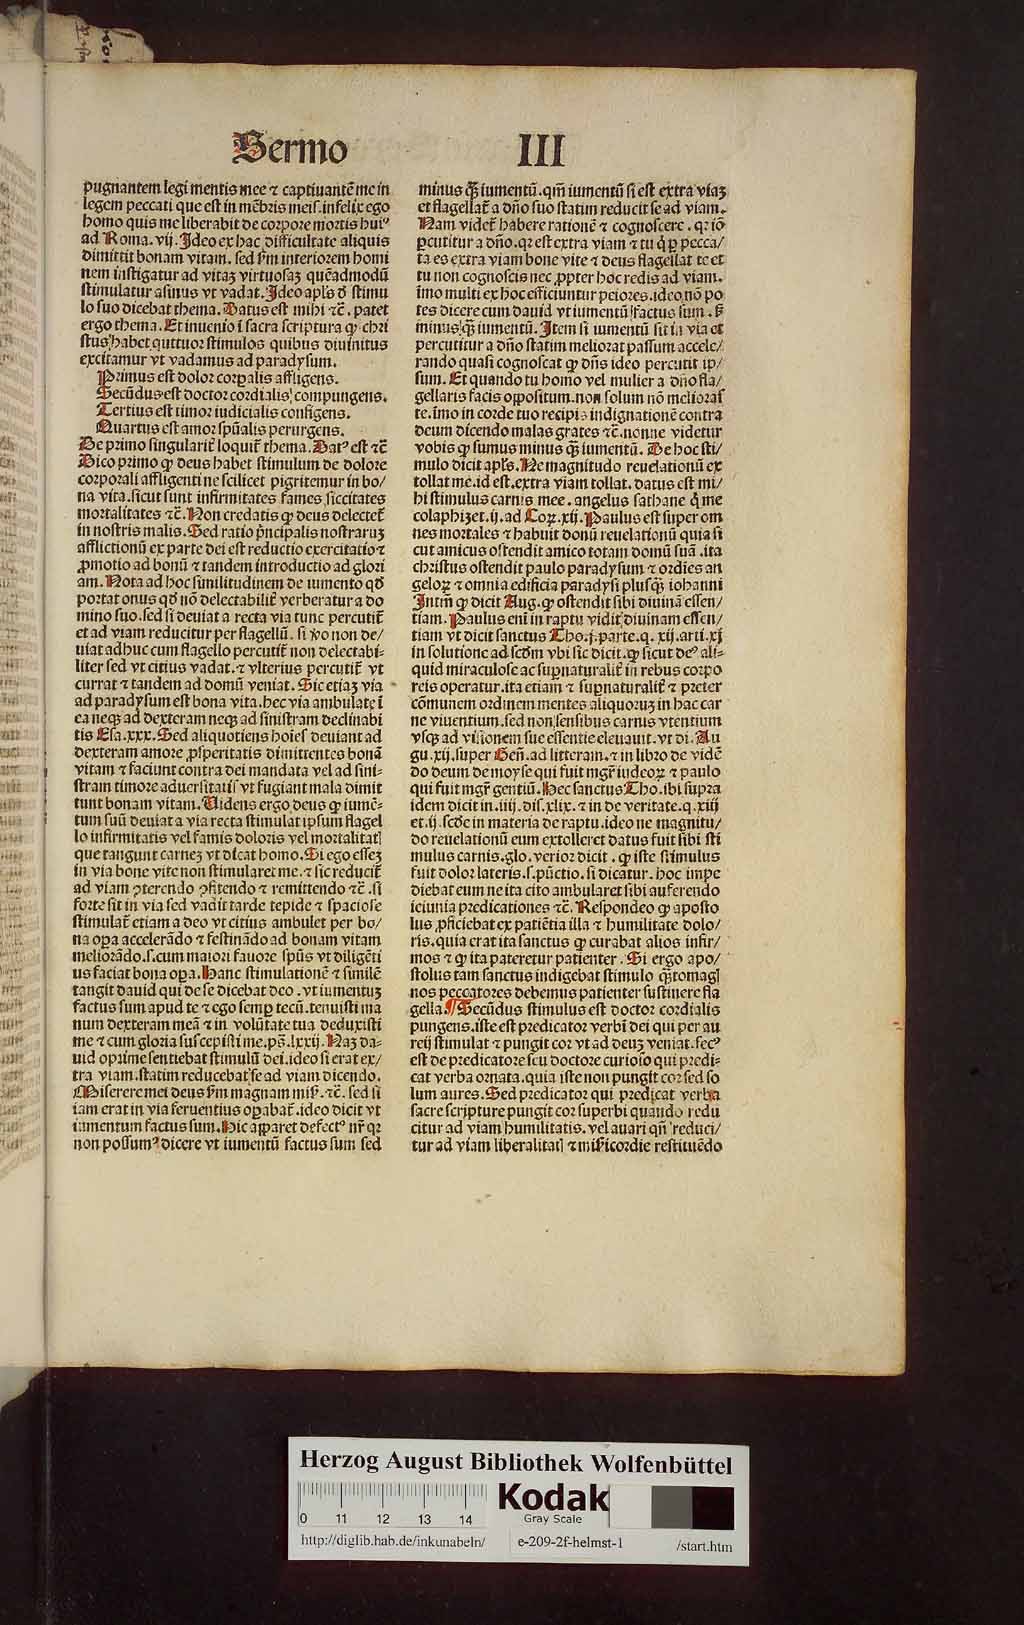 Sermo III
pugnantem legi mentis mee ⁊ captiuantē me in
legem peccati que est in mēbris meis. infelix ego
homo quis me liberabit de corpore mortis huiꝰ
ad Roma. vij. Ideo ex hac difficultate aliquis
dimittit bonam vitam. sed ẜm interiorem homi
nem instigatur ad vitaꝫ virtuosaꝫ quēadmodū
stimulatur asinus vt vadat. Ideo apl's d' stimu
lo suo dicebat thema. Datus est mihi ⁊c̄. patet
ergo thema. Et inuenio ī sacra scriptura ꝙ chri
stus habet quttuor stimulos quibus diuinitus
excitamur vt vadamus ad paradysum.
Primus est dolor corꝑalis affligens.
Secūdus est doctor cordialis compungens.
Tertius est timor iudicialis configens.
Quartus est amor spūalis perurgens.
De primo singularit̄ loquit̄ thema. Datꝰ est ⁊c̄
Dico primo ꝙ deus habet stimulum de dolore
corporali affligenti ne scilicet pigritemur in bo/
na vita. sicut sunt infirmitates fames siccitates
mortalitates ⁊c̄. Non credatis ꝙ deus delectet̄
in nostris malis. Sed ratio p̄ncipalis nostraruꝫ
afflictionū ex parte dei est reductio exercitatio ⁊
ꝓmotio ad bonū ⁊ tandem introductio ad glori
am. Nota ad hoc similitudinem de iumento qd̄
portat onus qd̄ nō delectabilit̄ verberatur a do
mino suo. sed si deuiat a recta via tunc percutit̄
et ad viam reducitur per flagellū. si v̄o non de/
uiat adhuc cum flagello percutit̄ non delectabi-
liter sed vt citius vadat. ⁊ vlterius percutit̄ vt
currat ⁊ tandem ad domū veniat. Sic etiaꝫ via
ad paradysum est bona vita. hec via ambulate ī
ea neqꝫ ad dexteram neqꝫ ad sinistram declinabi
tis Esa. xxx. Sed aliquotiens hoīes deuiant ad
dexteram amore ꝓsperitatis dimittentes bonā
vitam ⁊ faciunt contra dei mandata vel ad sini-
stram timore aduersitatis vt fugiant mala dimit
tunt bonam vitam. Uidens ergo deus ꝙ iumē-
tum suū deuiat a via recta stimulat ipsum flagel
lo infirmitatis vel famis doloris vel mortalitatꝭ
que tangunt carneꝫ vt dicat homo. Si ego esseꝫ
in via bone vite non stimularet me. ⁊ sic reducit̄
ad viam ꝯterendo ꝯfitendo ⁊ remittendo ⁊c̄. si
forte sit in via sed vadit tarde tepide ⁊ spaciose
stimulat̄ etiam a deo vt citius ambulet per bo/
na oꝑa accelerādo ⁊ festinādo ad bonam vitam
meliorādo. s. cum maiori fauore spūs vt diligēti
us faciat bona oꝑa. Hanc stimulationē ⁊ similē
tangit dauid qui de se dicebat deo. vt iumentuꝫ
factus sum apud te ⁊ ego semꝑ tecū. tenuisti ma
num dexteram meā ⁊ in volūtate tua deduxisti
me ⁊ cum gloria suscepisti me. ps̄. lxxij. Naꝫ da-
uid oprime sentiebat stimulū dei. ideo si erat ex/
tra viam. statim reducebat se ad viam dicendo.
Miserere mei deus ẜm magnam mis̄. ⁊c̄. sed si
iam erat in via feruentius oꝑabat̄. ideo dicit vt
iumentum factus sum. Hic apparet defectꝰ nr̄ qꝛ
non possumꝰ dicere vt iumentū factus sum sed
minus qꝫ̄ iumentū. qm̄ iumentū si est extra viaꝫ
et flagellat̄ a dn̄o suo statim reducit se ad viam.
Nam videt̄ habere rationē ⁊ cognoscere. qꝛ iō
ꝑcutitur a dn̄o. qꝛ est extra viam ⁊ tu q̇ ꝑ pecca/
ta es extra viam bone vite ⁊ deus flagellat te et
tu non cognoscis nec ꝓpter hoc redis ad viam.
īmo multi ex hoc efficiuntur peiores. ideo nō po
tes dicere cum dauid vt iumentū factus sum. s̄
minus qꝫ̄ iumentū. Item si iumentū sit in via et
percutitur a dn̄o statim meliorat passum accele/
rando quasi cognoscat ꝙ dn̄s ideo percutit ip/
sum. Et quando tu homo vel mulier a dn̄o fla/
gellaris facis oppositum. non solum nō melioras
te. īmo in corde tuo recipis indignationē contra
deum dicendo malas grates ⁊c̄. nonne videtur
vobis ꝙ sumus minus qꝫ̄ iumentū. De hoc sti/
mulo dicit apl's. Ne magnitudo reuelationū ex
tollat me. id est. extra viam tollat. datus est mi/
hi stimulus carnis mee. angelus sathane q̇ me
colaphizet. ij. ad Coꝝ. xij. Paulus est super om
nes mortales ⁊ habuit donū reuelationū quia si
cut amicus ostendit amico totam domū suā. ita
christus ostendit paulo paradysum ⁊ ordies an
geloꝝ ⁊ omnia edificia paradysi plusqꝫ̄ iohanni
Intm̄ ꝙ dicit Aug. ꝙ ostendit sibi diuinā essen/
tiam. Paulus eni in raptu vidit diuinam essen/
tiam vt dicit sanctus Tho. j. parte. q. xij. arti. xj
in solutione ad scd̄m vbi sic dicit. ꝙ sicut deꝰ ali-
quid miraculose ac suꝑnaturalit̄ in rebus corpo
reis operatur. ita etiam ⁊ suꝑnaturalit̄ ⁊ preter
cōmunem ordinem mentes aliquoruꝫ in hac car
ne viuentium. sed non sensibus carnis vtentium
vsqꝫ ad visionem sue essentie eleuauit. vt di. Au
gu. xij. super Gen̄. ad litteram. ⁊ in libro de vidē
do deum de moyse qui fuit mgr̄ iudeoꝝ ⁊ paulo
qui fuit mgr̄ gentiū. Hec sanctus Tho. ibi supra
idem dicit in. iiij. dis. xlix. ⁊ in de veritate. q. xiij
et. ij. scd̄e in materia de raptu. ideo ne magnitu/
do reuelationū eum extolleret datus fuit sibi sti
mulus carnis. glo. verior dicit. ꝙ iste stimulus
fuit dolor lateris. s. pūctio. si dicatur. hoc impe
diebat eum ne ita cito ambularet sibi auferendo
ieiunia predicationes ⁊c̄. Respondeo ꝙ aposto
lus ꝓficiebat ex patiētia illa ⁊ humilitate dolo/
ris. quia erat ita sanctus ꝙ curabat alios infir/
mos ⁊ ꝙ ita pateretur patienter. Si ergo apo/
stolus tam sanctus indigebat stimulo qꝫ̄tomagꝭ
nos peccatores debemus patienter sustinere fla
gella. ¶ Secūdus stimulus est doctor cordialis
pungens. iste est predicator verbi dei qui per au
reꝭ stimulat ⁊ pungit cor vt ad deuꝫ veniat. secꝰ
est de predicatore seu doctore curioso qui predi-
cat verba ornata. quia iste non pungit cor sed so
lum aures. Sed predicator qui predicat verba
sacre scripture pungit cor superbi quando redu
citur ad viam humilitatis. vel auari qn̄ reduci/
tur ad viam liberalitatꝭ ⁊ miẜicordie restituēdo
Herzog August Bibliothek Wolfenbüttel
0 11 12 13 14
Kodak
Gray Scale
http://diglib.hab.de/inkunabeln/ e-209-2f-helmst-1 /start.htm